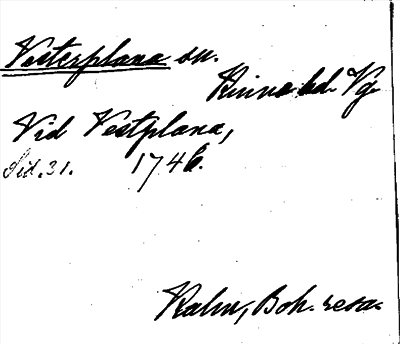 Vesterplana sn.
Kinne hd. Vg.
Vid Vestplana,
Sid. 31. 1746.
Kalm, Boh. resa.